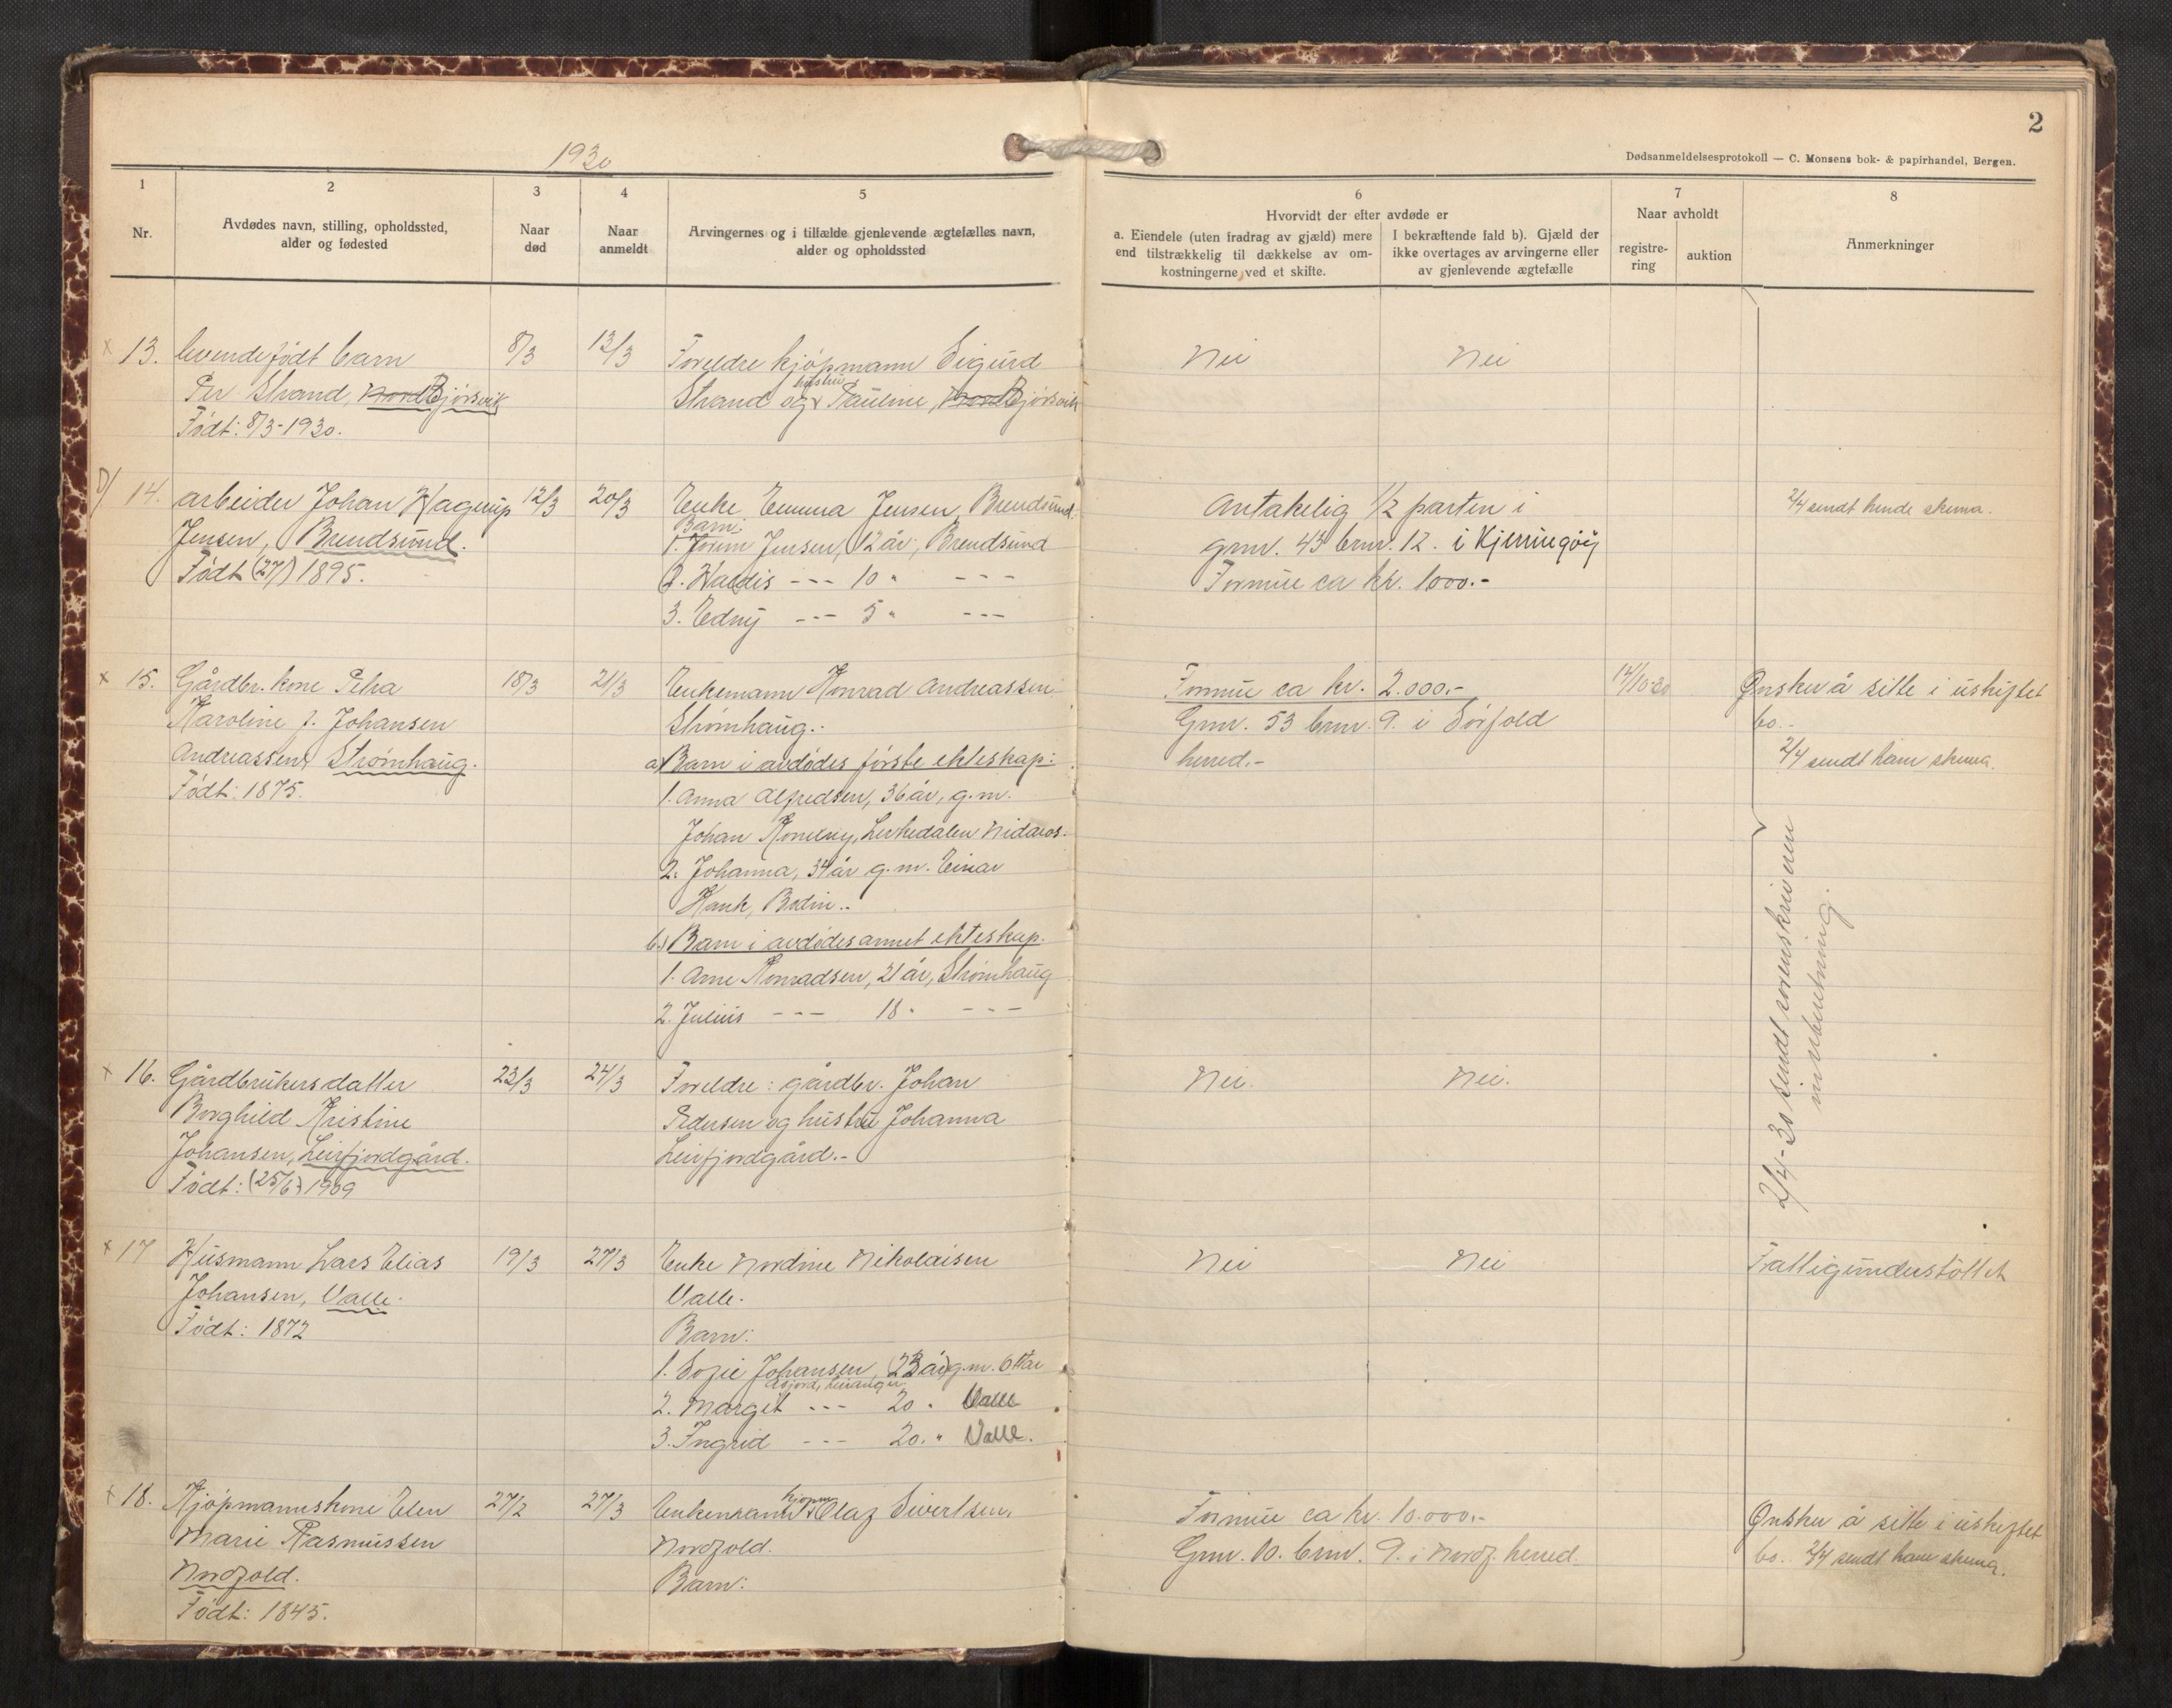 1930
2
Dødsanmeldelsesprotokoll — C. Monsens bok- & papirhandel, Bergen.
1
Nr.
2
Avdødes navn, stilling, opholdssted,
alder og fødested
3
Naar
død
4
Naar
anmeldt
5
Arvingernes og i tilfælde gjenlevende ægtefælles navn,
alder og opholdssted
6
Hvorvidt der efter avdøde er
a. Eiendele (uten fradrag av gjæld) mere
end tilstrækkelig til dækkelse av om-
kostningerne ved et skifte.
I bekræftende fald b). Gjæld der
ikke overtages av arvingerne eller
av gjenlevende ægtefælle
7
Naar avholdt
registre-
ring
auktion
8
Anmerkninger
x 13. levendefødt barn 8/3 13/3 Foreldre kjøpmann Sigurd Nei Nei
Per Strand, Nord Bjørsvik
hustru
Strand og Pauline, Nord Bjørsvik
Født: 8/3-1930.
14. arbeider Johan Hagerup 12/3 20/3 Enke Emma Jensen, Brendsund. Antakelig 1/2 parten i 2/4 sendt hende skema.
Barn:
Jensen, Brendsund. 1. Jorun Jensen, 12 år, Brendsund gnr. 43 bnr. 12. i Kjerringøy
Født (27/1) 1895. 2. Haldis --- 10 " --- Formue ca kr. 1000.-
3. Edny --- 5 " ---
x 15. Gårdbr. kone Petra 18/3 21/3 Enkemann Konrad Andreassen Formue ca kr. 2.000.- 14/10-30 Ønsker å sitte i uskiftet
Karoline f. Johansen Strømhaug. Gnr. 53 bnr. 9. i Sørfold bo.-
Andreassen, Strømhaug. a) Barn i avdødes første ekteskap: herred.- 2/4 sendt ham skema.
Født: 1875. 1. Anna Alfredsen, 36 år, g.m.
Johan Lerkedalen Nidaros.
2. Johanna, 34 år g.m. Einar
Hauk, Bodin.
b.) Barn i avdødes annet ekteskap.
1. Arne Konradsen, 21 år, Strømhaug
2. Julius --- 18 " ---
2/4-30 sendt sorenskriveren
innberetning.
x 16. Gårdbrukersdatter 23/3 24/3 Foreldre: gårdbr. Johan Nei. Nei.
Borghild Kristine Pedersen og hustru Johanna
Johansen, Leirfjordgård. Leirfjordgård.-
Født: (25/6) 1909
x 17 Husmann Lars Elias 19/3 27/3 Enke Nordine Nikolaisen Nei Nei Fattigunderstøttet
Johansen, Valle. Valle.
Født: 1872 Barn:
1. Sofie Johansen, (23 år) g.m. Ottar
2. Margit --- 20 " Valle
3. Ingrid --- 20. " Valle.
x 18. Kjøpmannskone Elen 27/2 27/3 Enkemann kjøpm. Olaf Sivertsen, Formue ca kr. 10.000.- Ønsker å sitte i uskiftet
Marie Rasmussen Nordfold. Gnr. 10. bnr. 9. i Nordf. herred. bo. 2/4 sendt ham skema.
Nordfold. Barn:
Født: 1845.